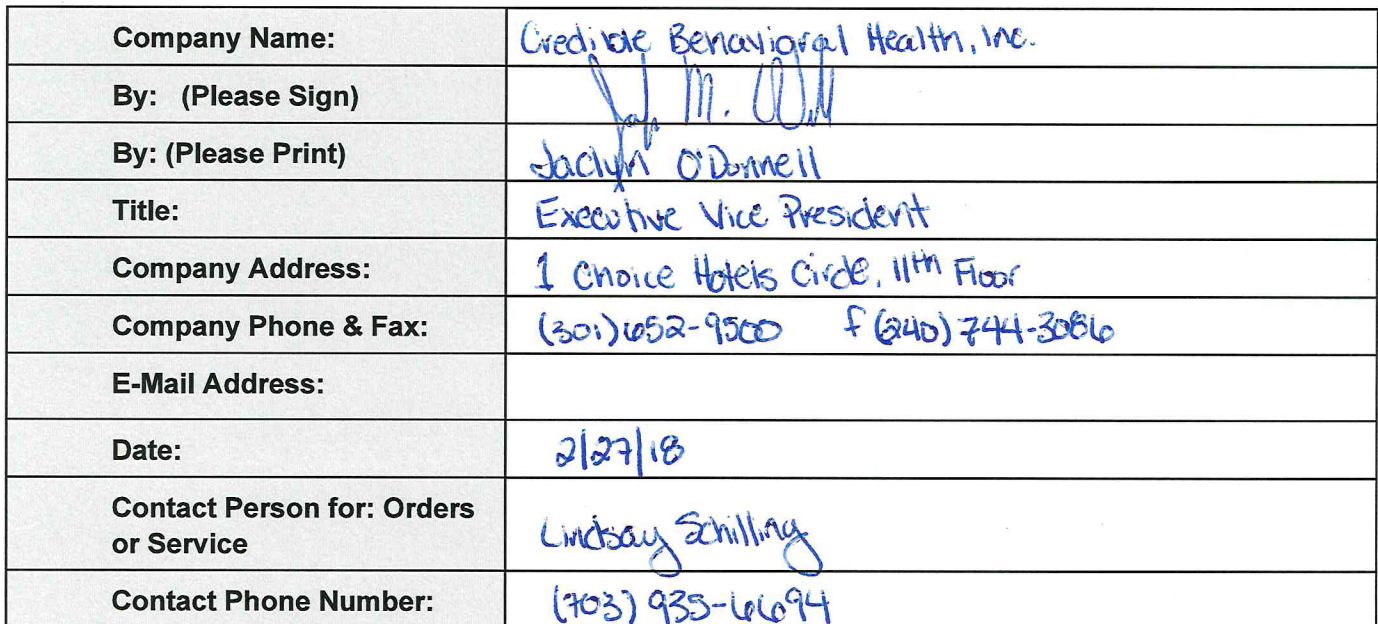 Company Name: Credible Behavioral Health, Inc.
By: (Please Sign)
By: (Please Print) Jaclyn O'Donnell
Title: Executive Vice President
Company Address: 1 Choice Hotels Circle, 11th Floor
Company Phone & Fax: (301) 652-9500 f (240) 744-3086
E-Mail Address:
Date: 2/27/18
Contact Person for: Orders
or Service Lindsay Schilling
Contact Phone Number: (703) 935-6694